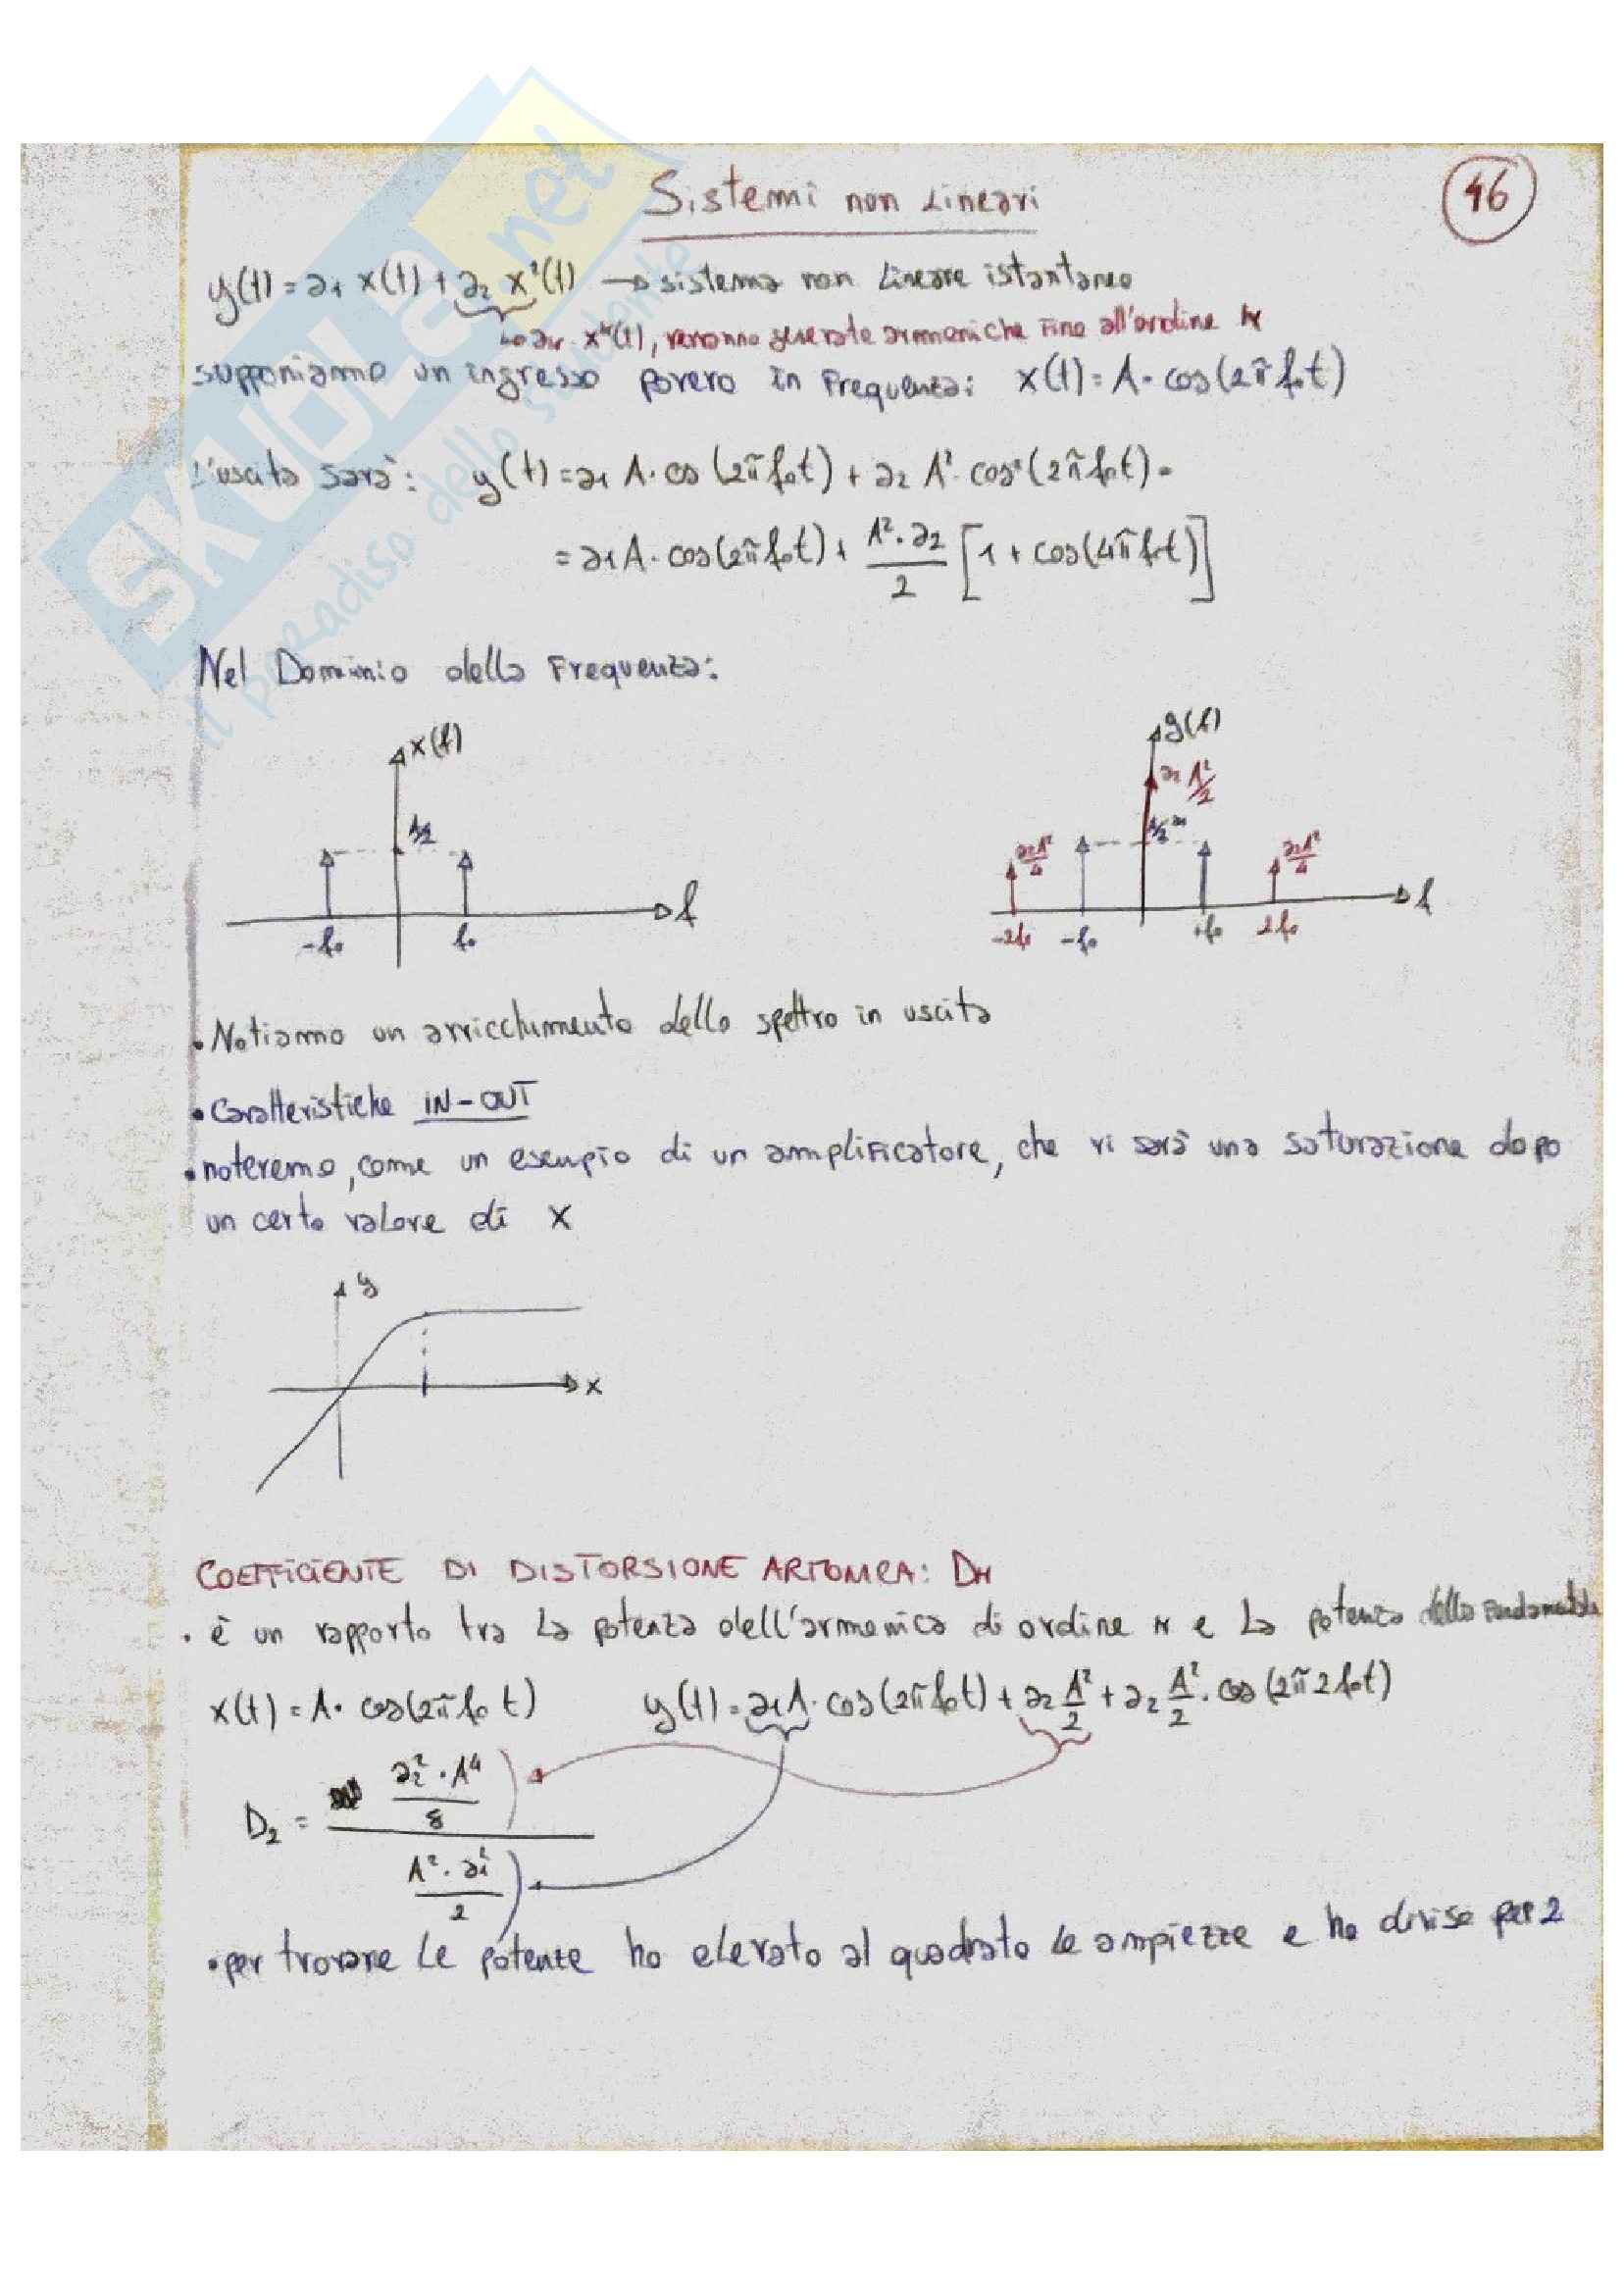 Sistemi non Lineari
46
y(t) = a₁ x(t) + a₂ x²(t) → sistema non Lineare istantaneo
↳ aₙ · xᴺ(t), verranno generate armoniche Fino all'ordine N
supponiamo un ingresso povero in Frequenza: x(t) = A · cos(2πf₀t)
L'uscita sarà: y(t) = a₁ A · cos(2πf₀t) + a₂ A² · cos²(2πf₀t) =
= a₁A · cos(2πf₀t) + A²·a₂/2 [1 + cos(4πf₀t)]
Nel Dominio della Frequenza:
x(f)
A/2
-f₀ f₀ f
y(f)
a₂ A²/2
A/2 a₁
a₂A²/4 a₂A²/4
-2f₀ -f₀ +f₀ 2f₀ f
• Notiamo un arricchimento dello spettro in uscita
• Caratteristiche IN-OUT
• noteremo, come un esempio di un amplificatore, che vi sarà una saturazione dopo
un certo valore di x
y
x
COEFFICIENTE DI DISTORSIONE : Dₙ
• è un rapporto tra La potenza dell'armonica di ordine N e La potenza della Fondamentale
x(t) = A · cos(2πf₀ t) y(t) = a₁A · cos(2πf₀t) + a₂ A²/2 + a₂ A²/2 · cos(2π2f₀t)
D₂ = (a₂² · A⁴ / 8) / (A² · a₁² / 2)
• per trovare Le potenze ho elevato al quadrato le ampiezze e ho diviso per 2
SKUOLA.net
il paradiso dello studente